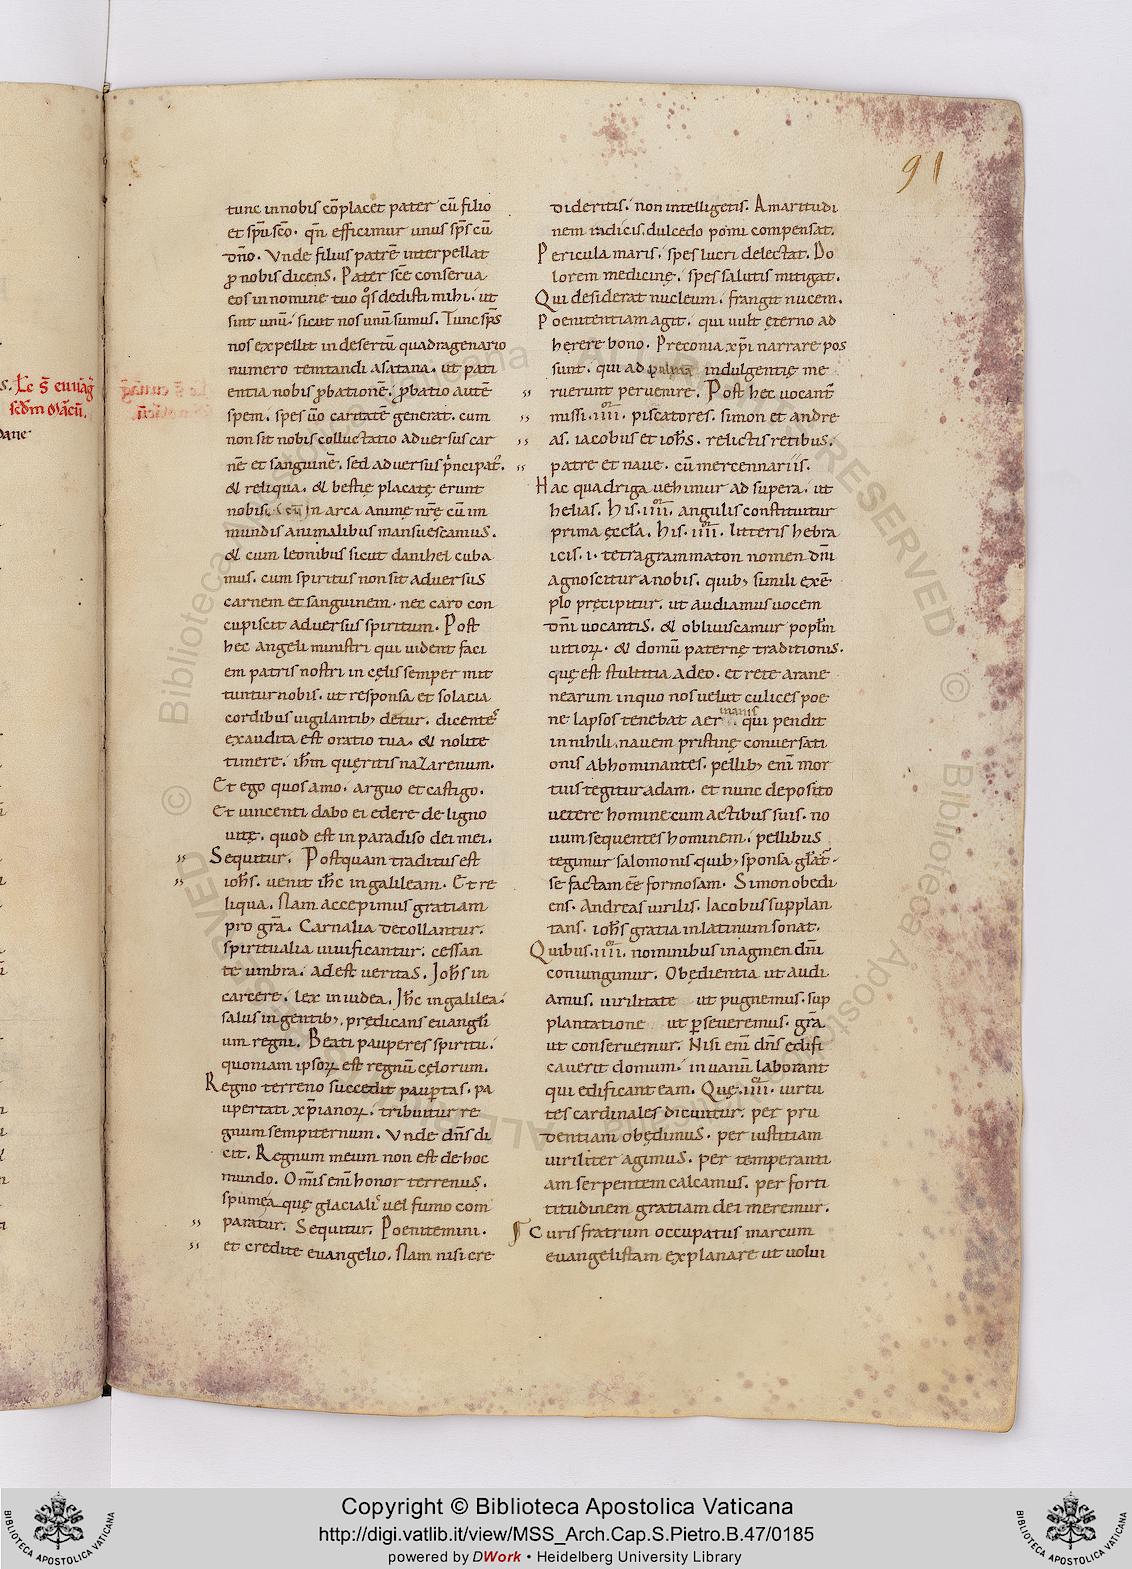 91
s. Lc̄ s̄ euuāg̃
scd̄m Mãcū.
dane
tunc innobis cōplacet pater cū filio
et sp̄u sc̄o. qn̄ efficimur unus sp̄s cū
dn̄o. Unde filius patrē interpellat
ꝓ nobis dicens. Pater sc̄e conserua
eos in nomine tuo q̊s dedisti mihi. ut
sint unū. sicut nos unū sumus. Tunc sp̄s
nos expellit in desertū quadragenario
numero temtandi asatana. ut pati
entia nobis ꝓbationē. ꝓbatio autē
spem. spes ũo caritatē generat. cum
non sit nobis colluctatio aduersus car
nē et sanguinē. sed aduersus p̃ncipat᷒.
& reliqua. & bestię placatę erunt
nobis. In arca animę nr̄ę cū im
mundis animalibus mansuescamus.
& cum leonibus sicut danihel cuba
mus. cum spiritus non sit aduersus
carnem et sanguinem. nec caro con
cupiscit aduersus spiritum. Post
hec angeli ministri qui uident faci
em patris nostri in cęlis semper mit
tuntur nobis. ut responsa et solacia
cordibus uigilantib; detur. dicentes
exaudita est oratio tua. & nolite
timere. ih̄m quęritis nazarenum.
Et ego quos amo. arguo et castigo.
Et uincenti dabo ei edere de ligno
uitę. quod est in paradiso dei mei.
Sequitur. Postquam traditus est
ioh̄s. uenit ih̄c in galileam. Et re
liqua. Nam accepimus gratiam
pro gr̄a. Carnalia decollantur.
spiritualia uiuificantur. cessan
te umbra. adest ueritas. Ioh̄s in
carcere. lex in iudea. Ih̄c in galilea.
salus in gentib;. prędicans euangl̄i
um regni. Beati pauperes spiritu.
quoniam ipsoꝝ est regnū cęlorum.
Regno terreno succedit paup̱tas. pa
upertati xp̄ianoꝝ. tribuitur re
gnum sempiternum. Unde dn̄s di
cit. Regnum meum non est de hoc
mundo. Om̄is eni honor terrenus.
spumea quę glaciali uel fumo com
paratur. Sequitur. Poenitemini.
et credite euangelio. Nam nisi cre
dideritis. non intelligetis. Amaritudi
nem radicis. dulcedo pomi compensat.
Pericula maris. spes lucri delectat. Do
lorem medicinę. spes salutis mitigat.
Qui desiderat nucleum. frangit nucem.
Poenitentiam agit. qui uult ęterno ad
herere bono. Preconia xp̄i narrare pos
sunt. qui ad palmā indulgentię me
ruerunt peruenire. Post hec uocant̄
missi .iiii.or piscatores. simon et andre
as. iacobus et ioh̄s. relictis retibus.
patre et naue. cū mercennariis.
Hac quadriga uehimur ad supera. ut
helias. His .iiii.or angulis constituitur
prima ęccl̄a. His .iiii.or litteris hebra
icis. i. tetragrammaton nomen dn̄i
agnoscitur a nobis. quib; simili exē
plo pręcipitur. ut audiamus uocem
dn̄i uocantis. & obliuiscamur popl̄m
uitioꝝ. & domū paternę traditionis.
quę est stultitia adeo. et rete arane
nearum in quo nos uelut culices poe
ne lapsos tenebat aer inanis. qui pendit
in nihili. nauem pristinę conuersati
onis abhominantes. pellib; eni mor
tuis tegitur adam. et nunc deposito
uetere homine cum actibus suis. no
uum sequentes hominem. pellibus
tegimur salomonis quib; sponsa gl̄at᷒
se factam eē formosam. Simon obedi
ens. Andreas uirilis. Iacobus supplan
tans. ioh̄s gratia in latinum sonat.
Quibus .iiii.or nominibus in agmen dn̄i
coniungimur. Obędientia ut audi
amus. uirilitate ut pugnemus. sup
plantatione ut ꝑseueremus. gr̄a
ut conseruemur. Nisi eni dn̄s edifi
cauerit domum. in uanū laborant
qui edificant eam. Quę .iiii.or uirtu
tes cardinales dicuntur. per pru
dentiam obędimus. per iustitiam
uiriliter agimus. per temperanti
am serpentem calcamus. per forti
titudinem gratiam dei meremur.
¶ Curis fratrum occupatus marcum
euangelistam explanare ut uolui
Copyright © Biblioteca Apostolica Vaticana
http://digi.vatlib.it/view/MSS_Arch.Cap.S.Pietro.B.47/0185
powered by DWork • Heidelberg University Library
BIBLIOTECA APOSTOLICA VATICANA
BIBLIOTECA APOSTOLICA VATICANA
© Biblioteca Apostolica Vaticana ALL RIGHTS RESERVED